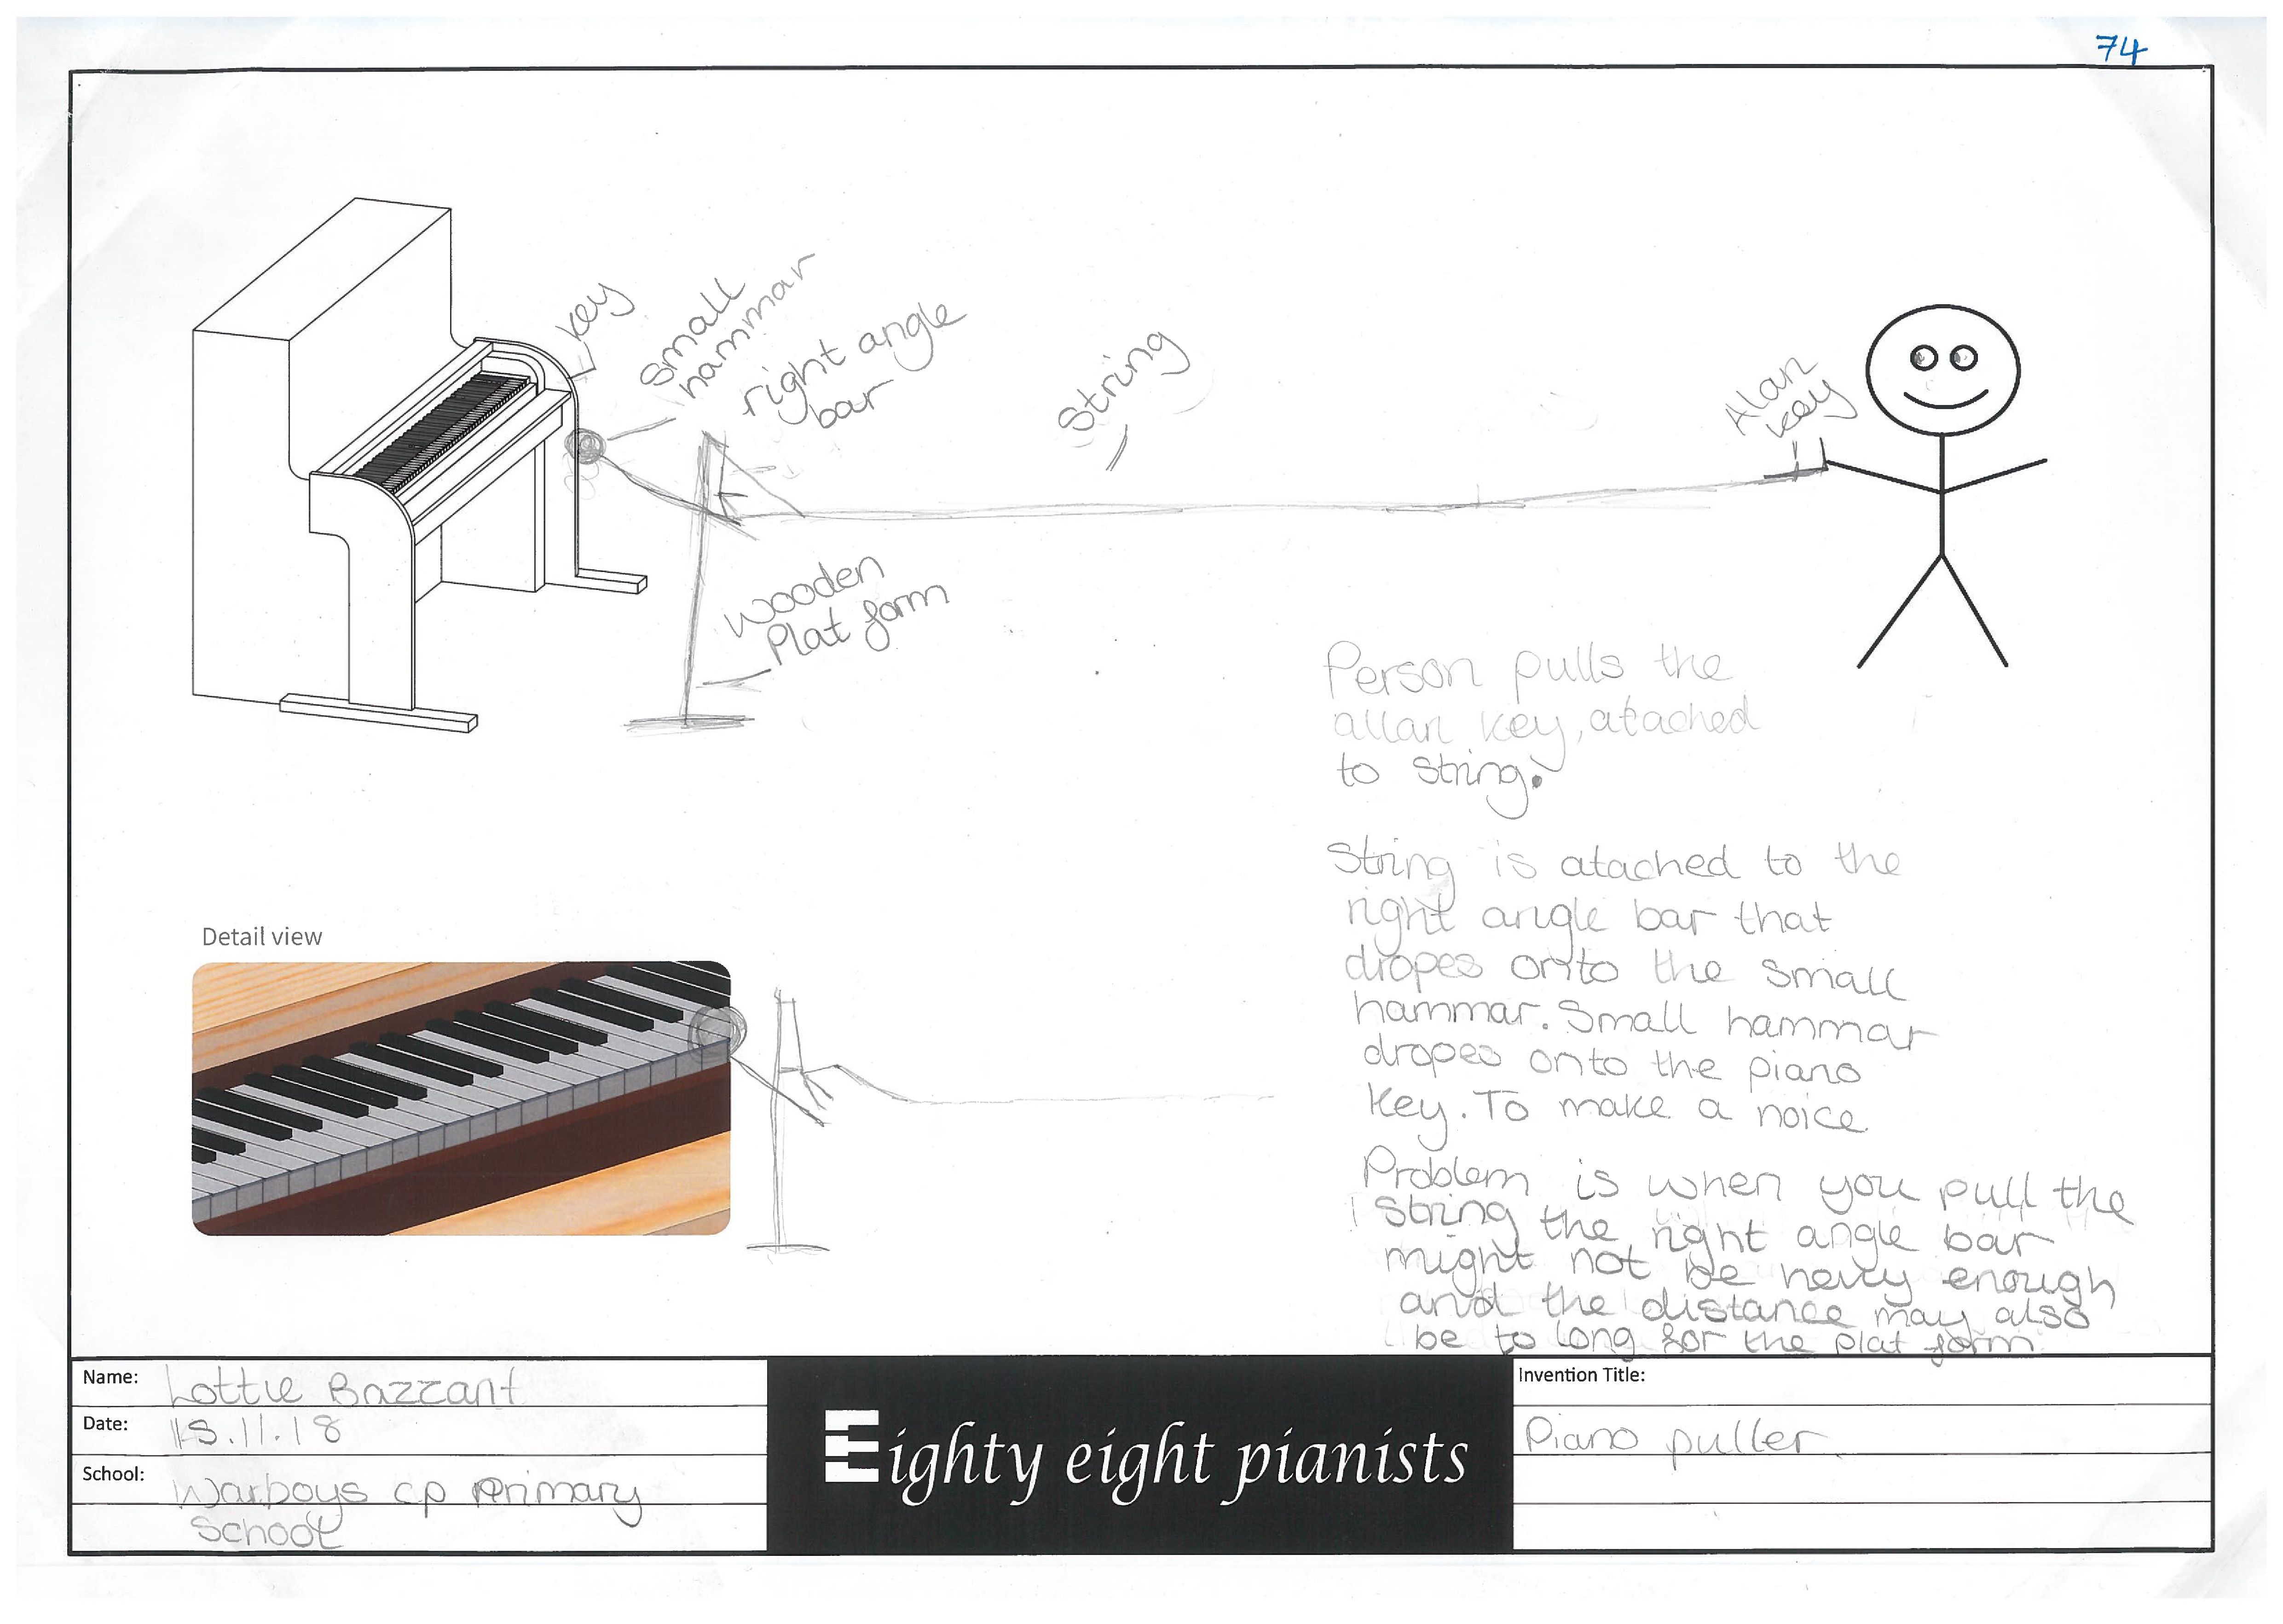 74
key
small
hammar
right angle
bar
String
Alan
key
wooden
Plat form
Person pulls the
allan key, atached
to string.
String is atached to the
right angle bar that
dropes onto the small
hammar. Small hammar
dropes onto the piano
key. To make a noice
Problem is when you pull the
string the right angle bar
might not be hevey enough
and the distance may also
be to long for the plat form
Detail view
Name: Lottie Bazzant
Date: 15.11.18
School: Warboys cp primary
School
Eighty eight pianists
Invention Title:
Piano puller